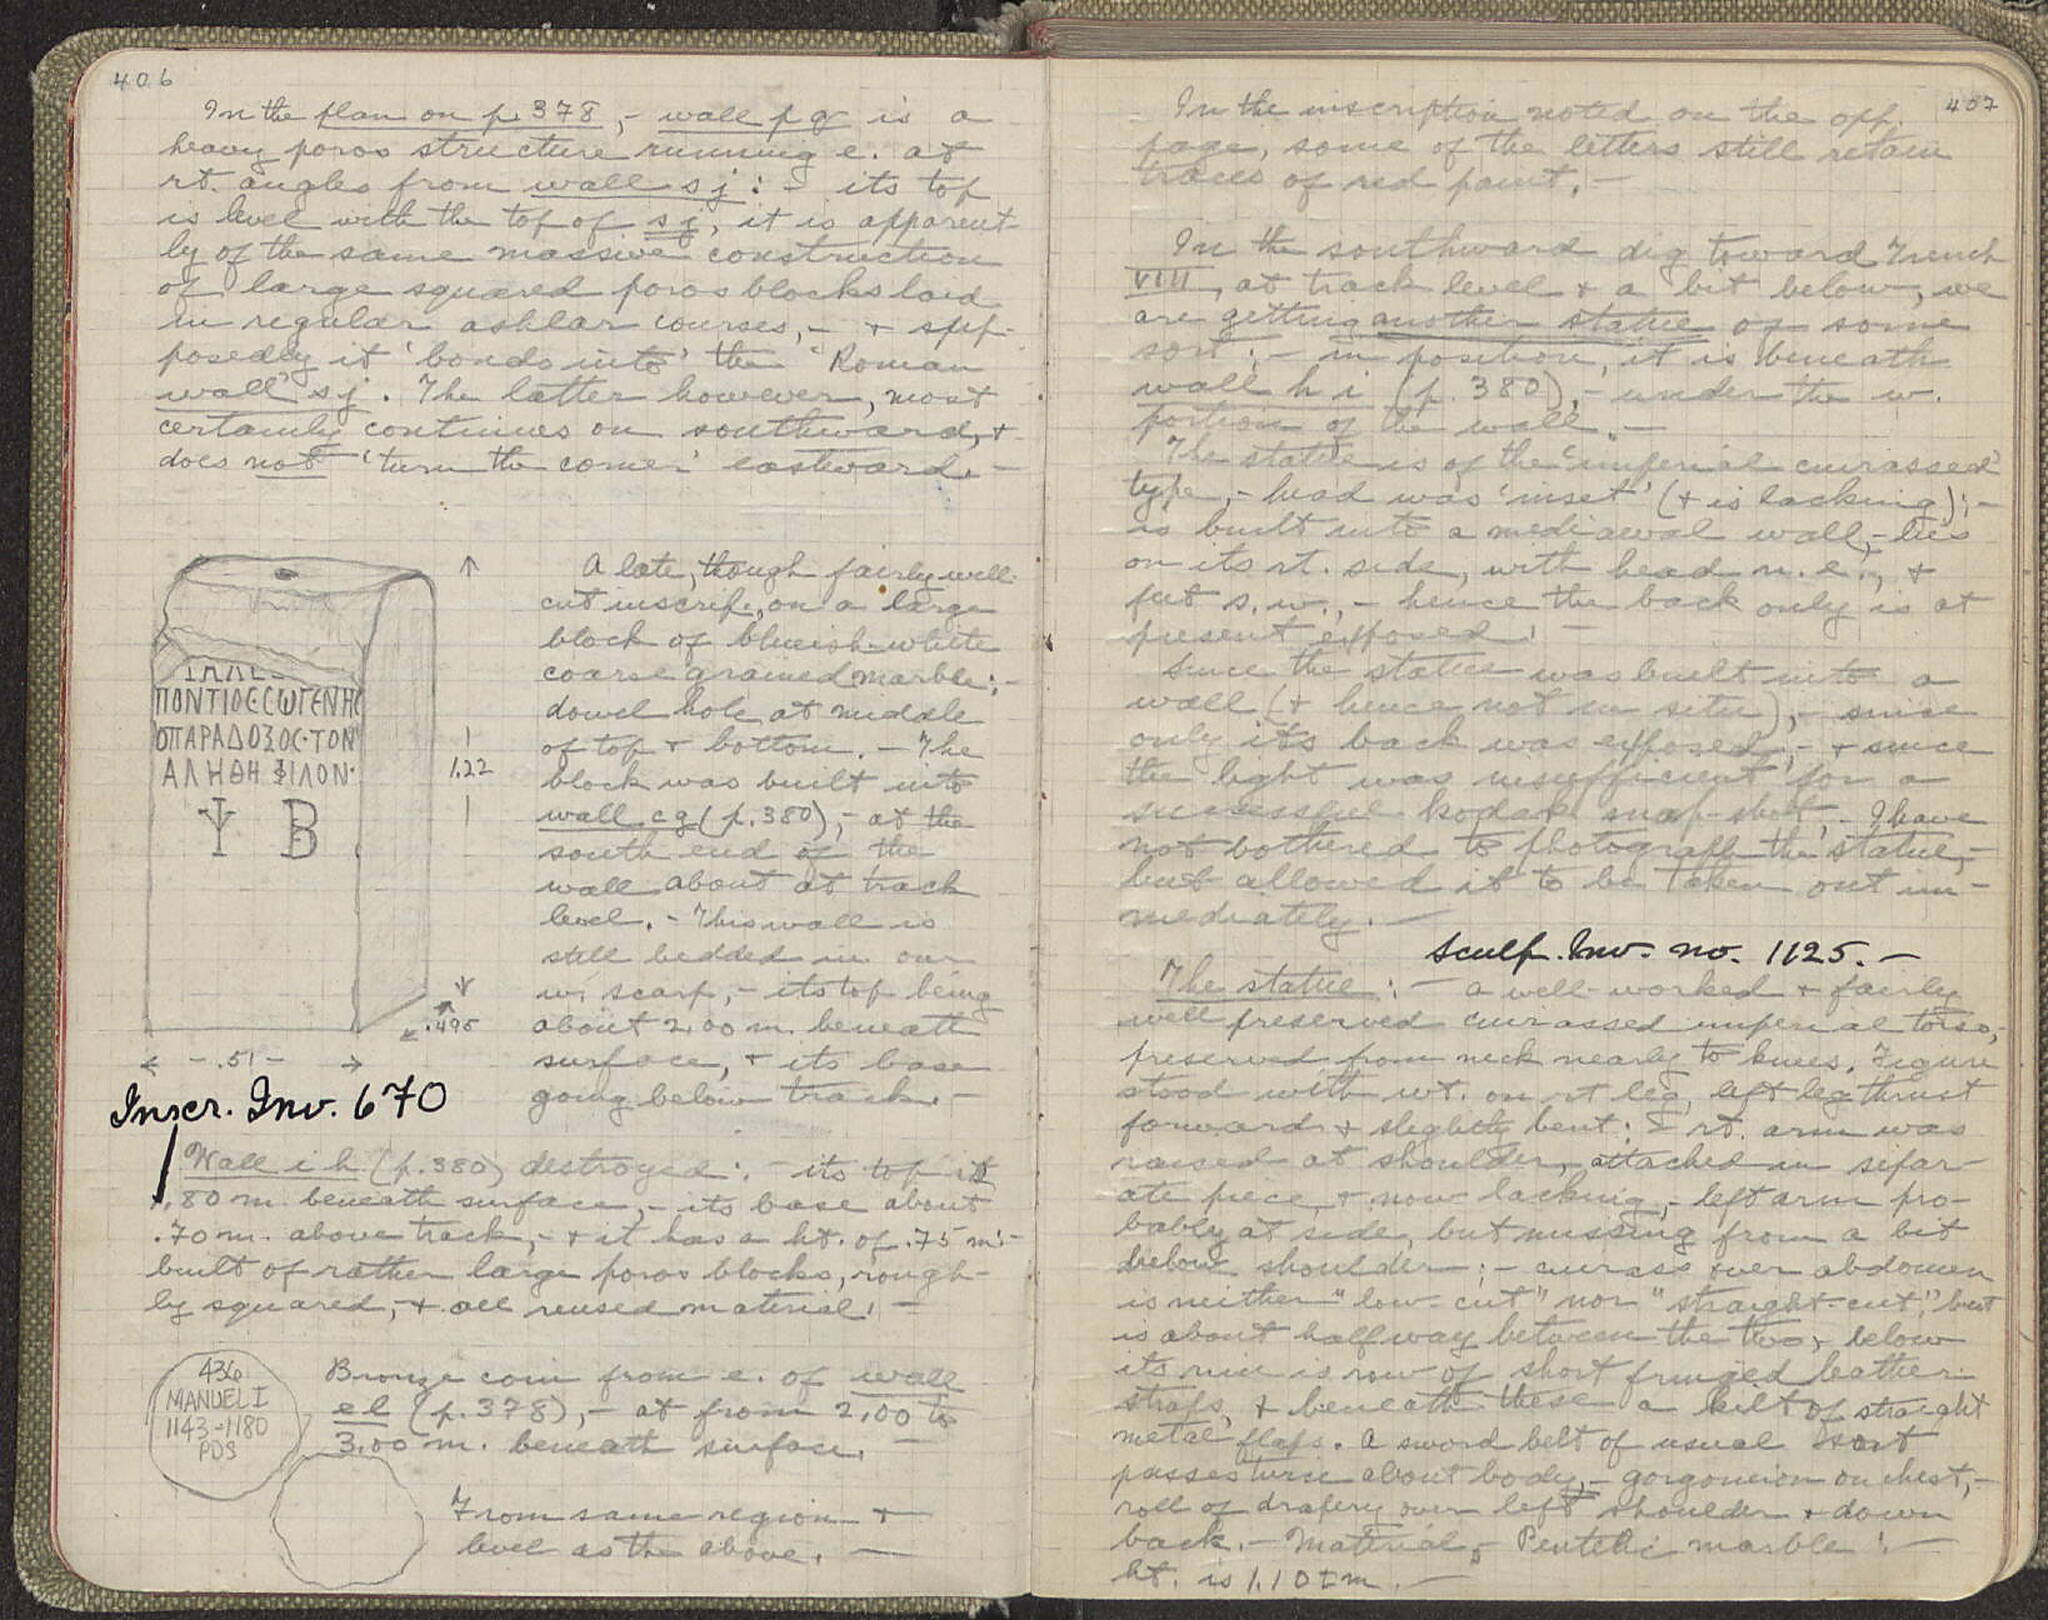 406
In the plan on p. 378, - wall p q is a
heavy poros structure running e. at
rt. angles from wall s j : - its top
is level with the top of s j, it is apparent-
ly of the same massive construction
of large squared poros blocks laid
in regular ashlar courses, - + supp-
posedly it 'bonds into' the "Roman
wall" s j. The latter however, most
certainly continues on southward, +
does not 'turn the corner' eastward. -
ΠΟΝΤΙΟϹϹΩΓΕΝΗϹ
ΟΠΑΡΑΔΟΞΟϹ·ΤΟΝ
ΑΛΗΘΗ ΦΙΛΟΝ·
Ψ Β
1.22
.495
- .51 -
Inscr. Inv. 670
A late, though fairly well-
cut inscrip., on a large
block of blueish-white
coarse grained marble; -
dowel hole at middle
of top + bottom. - The
block was built into
wall c g (p. 380), - at the
south end of the
wall about at track
level. - This wall is
still bedded in our
w. scarp, - its top being
about 2.00 m. beneath
surface, + its base
going below track. -
Wall i h (p. 380) destroyed: - its top is
1.80 m. beneath surface, - its base about
.70 m. above track, - + it has a ht. of .75 m: -
built of rather large poros blocks, rough-
ly squared, - + all reused material. -
436
MANUEL I
1143-1180
POS
Bronze coin from e. of wall
e l (p. 378), - at from 2.00 to
3.00 m. beneath surface. -
From same region +
level as the above. -
407
In the inscription noted on the opp.
page, some of the letters still retain
traces of red paint. -
In the southward dig toward Trench
VIII, at track level + a bit below, we
are getting another statue of some
sort; - in position, it is beneath
wall h i (p. 380), - under the w.
portion of the wall. -
The statue is of the 'imperial cuirassed'
type, - head was 'inset' (+ is lacking); -
is built into a mediaeval wall, - lies
on its rt. side, with head n. e., +
feet s. w., - hence the back only is at
present exposed. -
Since the statue was built into a
wall (+ hence not in situ), - since
only its back was exposed, - + since
the light was insufficient for a
successful kodak snap-shot, - I have
not bothered to photograph the statue, -
but allowed it to be taken out im-
mediately. -
Sculp. Inv. no. 1125. -
The statue : - a well-worked + fairly
well preserved cuirassed imperial torso,
preserved from neck nearly to knees. Figure
stood with wt. on rt leg, left leg thrust
forward + slightly bent; - rt. arm was
raised at shoulder, attached in separ-
ate piece + now lacking, - left arm pro-
bably at side, but missing from a bit
below shoulder ; - cuirass over abdomen
is neither "low-cut" nor "straight-cut," but
is about half way between the two, below
its rim is row of short fringed leather
straps, + beneath these a kilt of straight
metal flaps. A sword belt of usual sort
passes twice about body, - gorgoneion on chest, -
roll of drapery over left shoulder + down
back. - Material, - Pentelic marble. -
ht. is 1.10 ± m. -